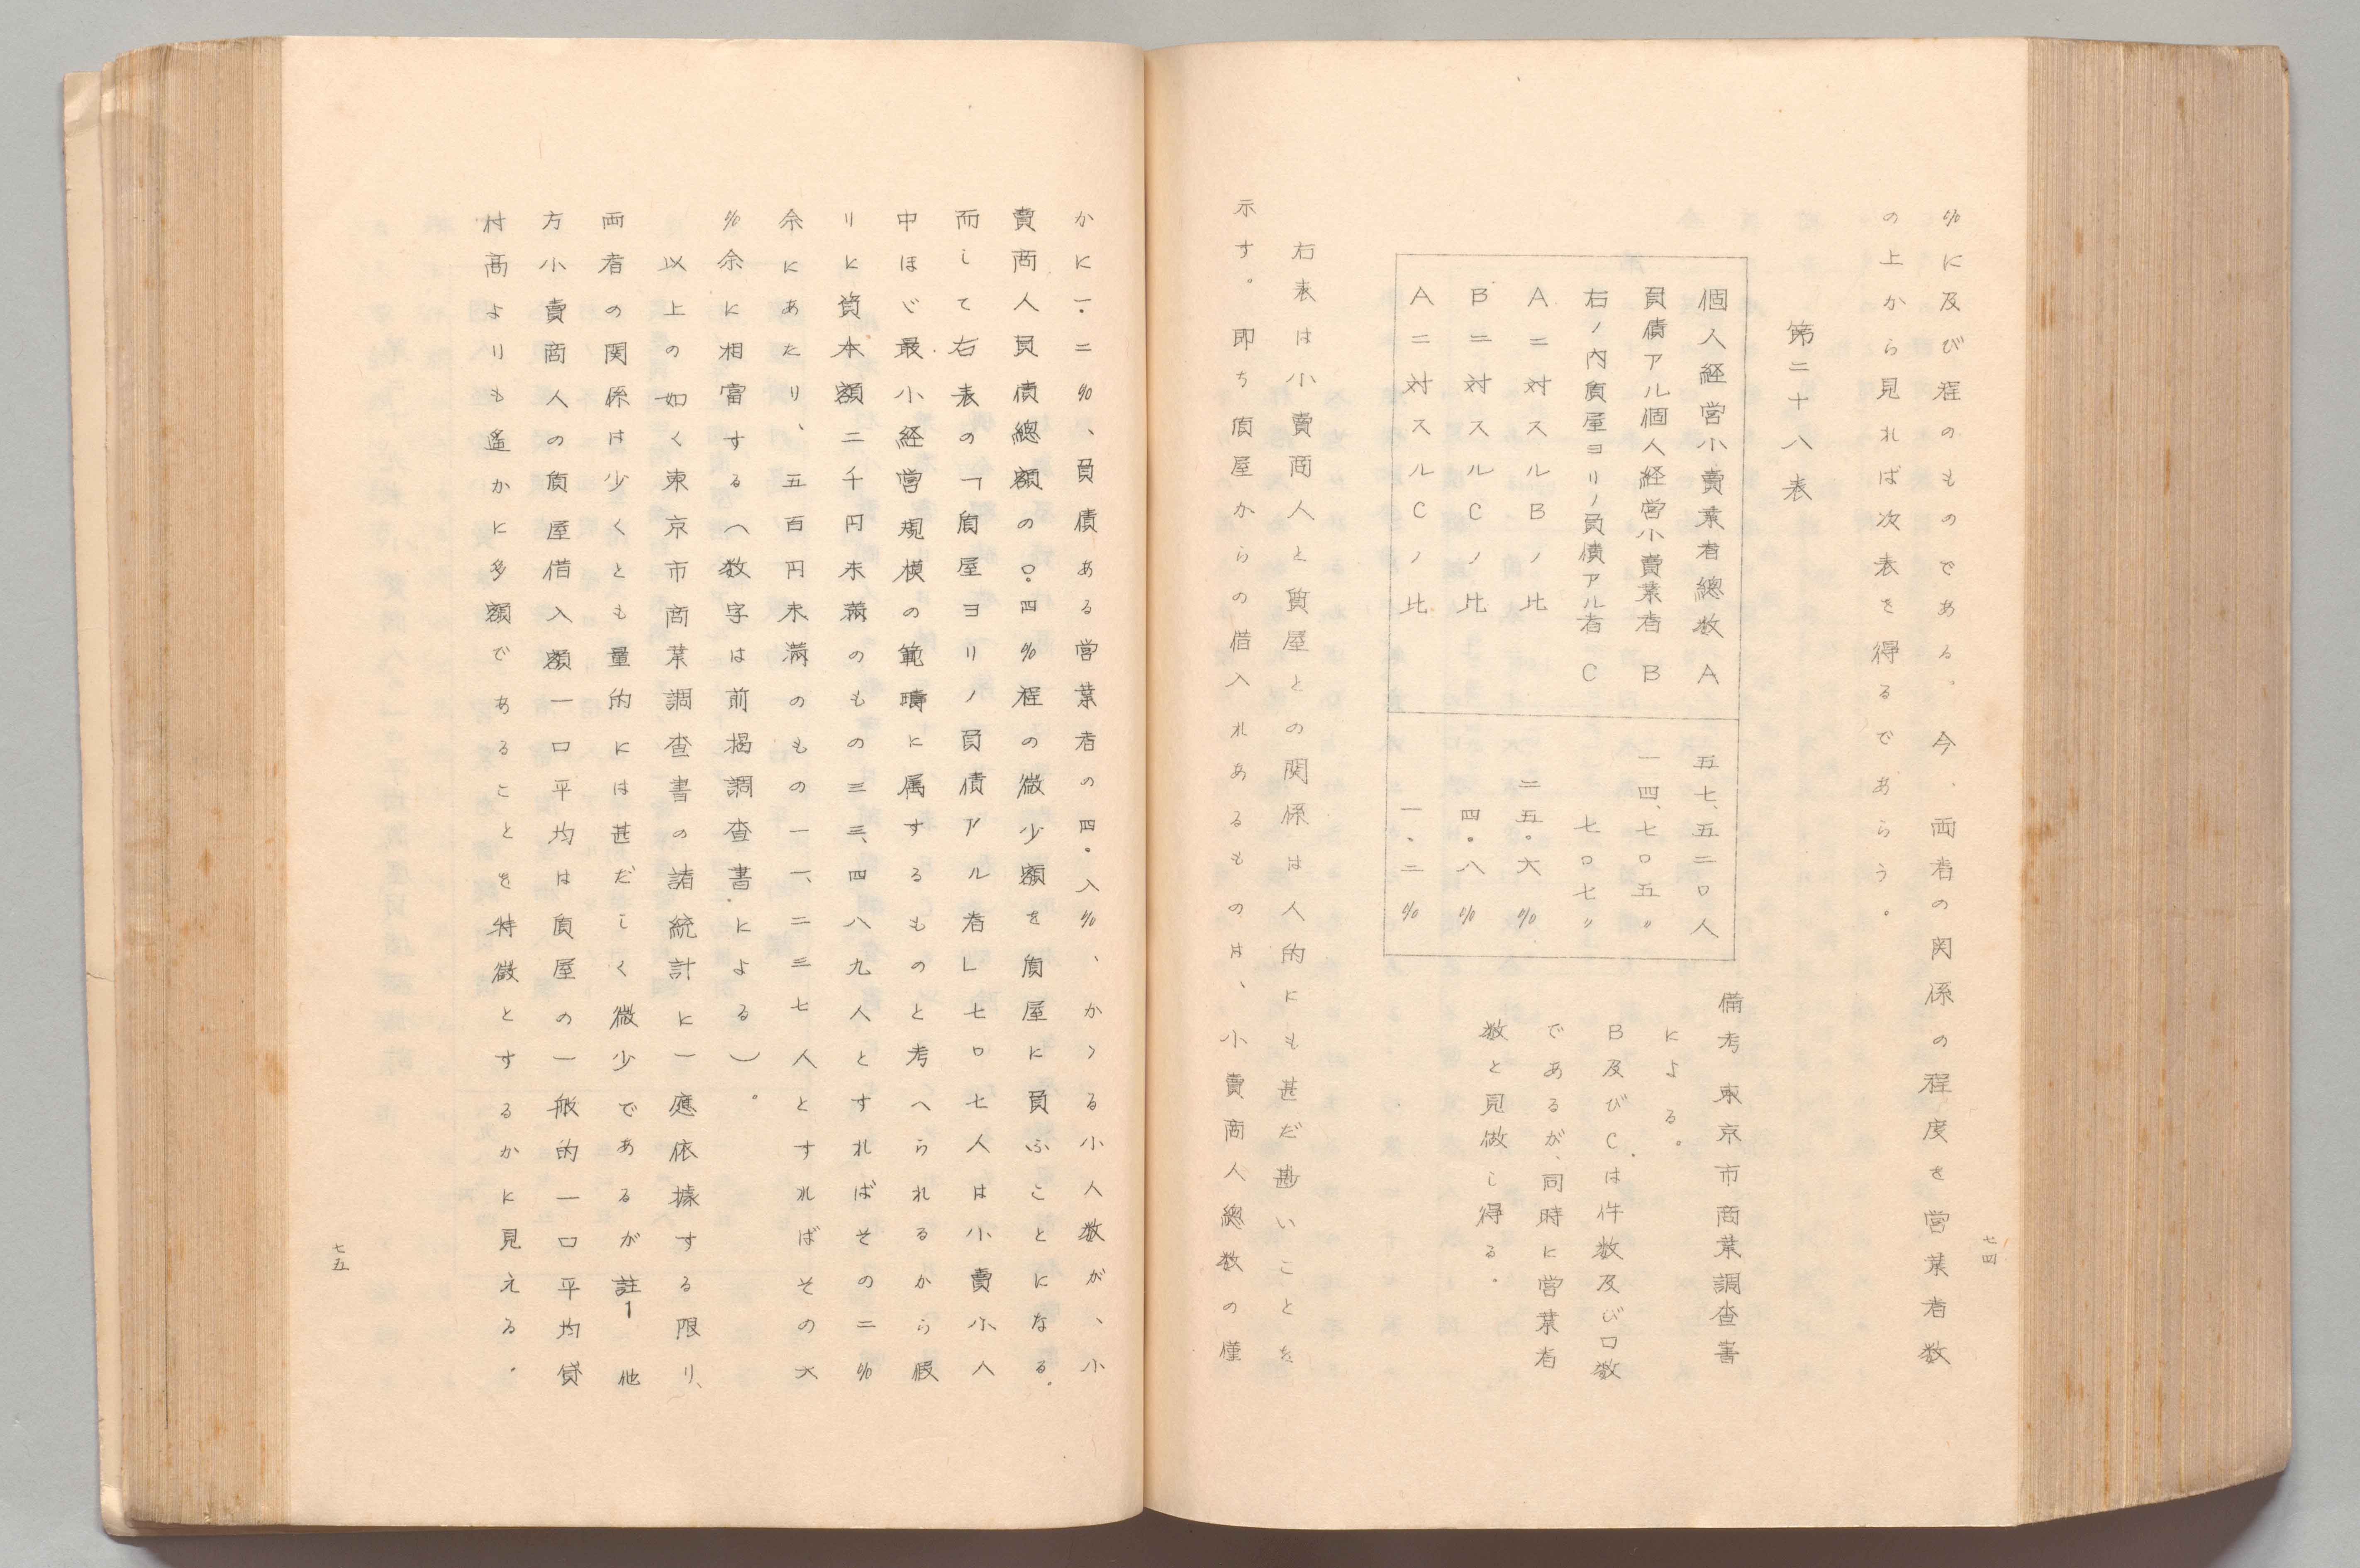 ％に及び程のものである。今、両者の関係の程度を営業者数
の上から見れば次表を得るであらう。
第二十八表
個人経営小賣業者總数 A 五七、五二〇人
負債アル個人経営小賣業者 B 一四、七〇五〃
右ノ内質屋ヨリノ負債アル者 C 七〇七〃
Aニ対スルBノ比 二五。六％
Bニ対スルCノ比 四。八％
Aニ対スルCノ比 一、二％
備考 東京市商業調査書
による。
B及びCは件数及び口数
であるが、同時に営業者
数と見做し得る。
右表は小賣商人と質屋との関係は人的にも甚だ尠いことを
示す。即ち質屋からの借入れあるものは、小賣商人總数の僅
七四
かに一.二％、負債ある営業者の四.八％、かゝる小人数が、小
賣商人負債總額の〇.四％程の微少額を質屋に負ふことになる。
而して右表の「質屋ヨリノ負債アル者」七〇七人は小賣小人
中ほゞ最小経営規模の範疇に属するものと考へられるから假
りに資本額二千円未満のもの三三、四八九人とすればその二％
余にあたり、五百円未満のもの一一、二三七人とすればその六
％余に相當する（数字は前掲調査書による）。
以上の如く東京市商業調査書の諸統計に一應依據する限り、
両者の関係は少くとも量的には甚だしく微少であるが註1 他
方小賣商人の質屋借入額一口平均は質屋の一般的一口平均貸
付高よりも遙かに多額であることを特徴とするかに見える。
七五